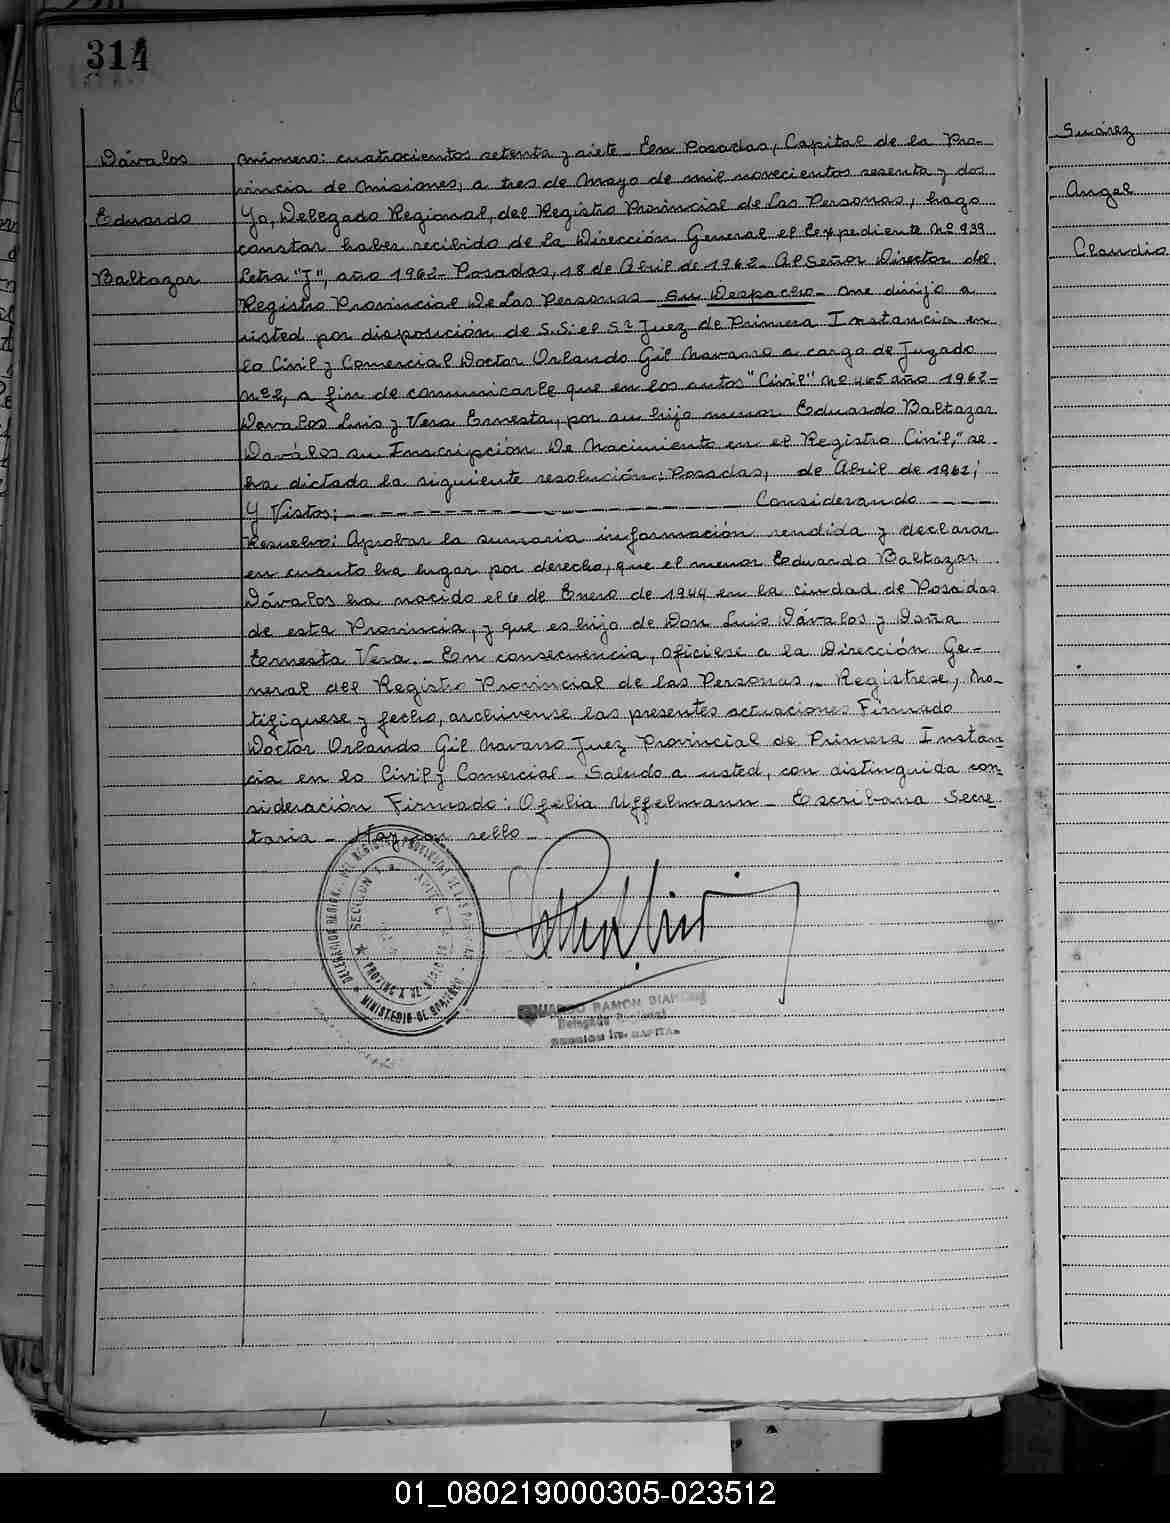 314
Dávalos
Eduardo
Baltazar
número: cuatrocientos setenta y siete_ En Posadas, Capital de la Pro-
vincia de Misiones, a tres de Mayo de mil novecientos sesenta y dos
Yo, Delegado Regional, del Registro Provincial de las Personas, hago
constar haber recibido de la Dirección General el Expediente Nº 939
Letra "J", año 1962- Posadas, 18 de Abril de 1962_ Al Señor Director del
Registro Provincial De Las Personas_ Su Despacho_ Me dirijo a
usted por disposición de S.S: el Sr Juez de Primera Instancia en
lo Civil y Comercial Doctor Orlando Gil Navarro a cargo de Juzgado
Nº 2, a fin de comunicarle que en los autos "Civil" Nº 465 año 1962-
Davalos Luis y Vera Ernesta, por su hijo menor Eduardo Baltazar
Daválos su Inscripción De Nacimiento en el Registro Civil," se
ha dictado la siguiente resolución: Posadas, de Abril de 1962;
Y Vistos; _ _ _ _ _ _ _ _ _ _ _ _ Considerando _ _ _ _
Resuelvo: Aprobar la sumaria información rendida y declarar
en cuanto ha lugar por derecho, que el menor Eduardo Baltazar
Dávalos ha nacido el 6 de Enero de 1944 en la ciudad de Posadas
de esta Provincia, y que es hijo de Don Luis Dávalos y Doña
Ernesta Vera._ En consecuencia, ofíciese a la Dirección Ge-
neral del Registro Provincial de las Personas._ Registrese, No-
tifiquese y fecho, archivense las presentes actuaciones Firmado
Doctor Orlando Gil Navarro Juez Provincial de Primera Instan-
cia en lo Civil y Comercial_ Saludo a usted, con distinguida con-
sideración Firmado: Ofelia Uffelmann_ Escribana Secre-
taria_ Hay un sello_
DELEGACION REGIONAL DEL REGISTRO PROVINCIAL DE LAS PERSONAS
SECCION 1
PROVINCIA DE MISIONES
MINISTERIO DE GOBIERNO
EDUARDO RAMON
Delegado Regional
SECCION 1ra. CAPITAL
Suárez
Angel
Claudio
01_080219000305-023512